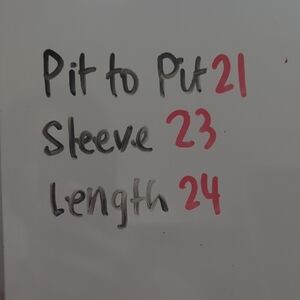 Pit to Pit 21
Sleeve 23
Length 24